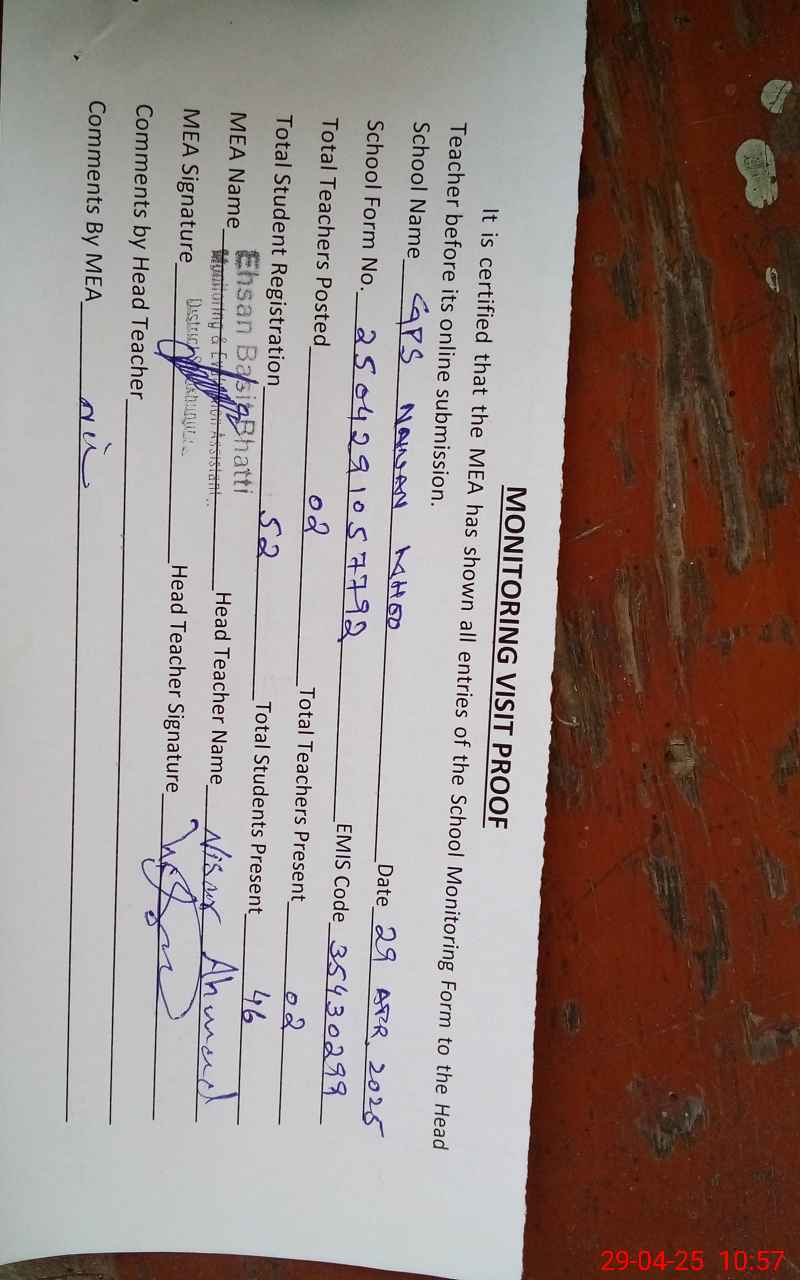 MONITORING VISIT PROOF
It is certified that the MEA has shown all entries of the School Monitoring Form to the Head
Teacher before its online submission.
School Name GPS NANAN Date 29 APR, 2025
School Form No. 250429105 7792 EMIS Code 35430299
Total Teachers Posted 02 Total Teachers Present 02
Total Student Registration 52 Total Students Present 46
MEA Name Ehsan Basit Bhatti Head Teacher Name Nisar Ahmad
Monitoring & Evaluation Assistant
MEA Signature District Head Teacher Signature
Comments by Head Teacher
Comments By MEA Nil
29-04-25 10:57